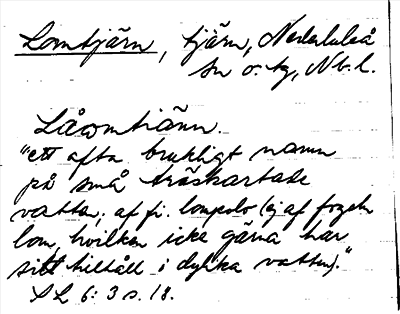 Lomtjärn, tjärn, Nederluleå
sn o. tg, Nb. l.
Låomtiänn.
"ett ofta brukligt namn
på små träskartade
vatten; af fi. lompolo (ej af fogeln
lom, hvilken icke gärna har
sitt tillhåll i dylika vatten)."
SL 6: 3 s. 18.